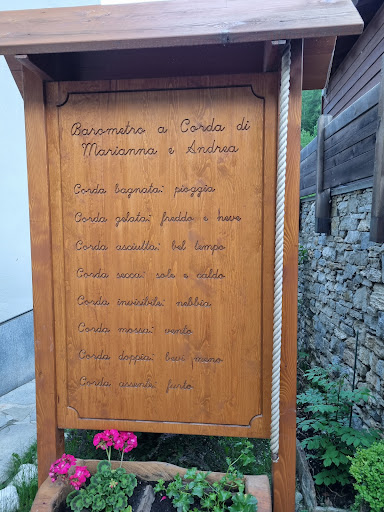 Barometro a Corda di
Marianna e Andrea
Corda bagnata: pioggia
Corda gelata: freddo e neve
Corda asciutta: bel tempo
Corda secca: sole e caldo
Corda invisibile: nebbia
Corda mossa: vento
Corda doppia: bevi meno
Corda assente: furto